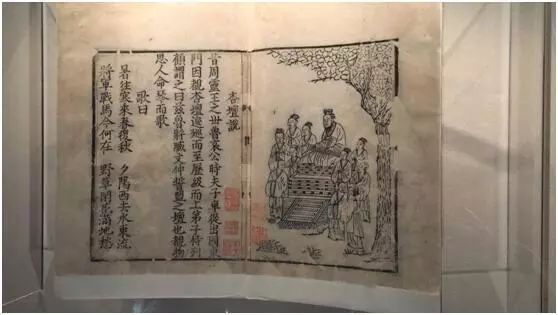 杏壇說
昔周靈王之世魯哀公時夫子車從出國東
門因覩杏壇逡巡而至歷級而上弟子侍列
顧謂之曰茲魯將臧文仲誓盟之壇也覩物
思人命琴而歌
歌曰
暑往寒來春復秋 夕陽西去水東流
將軍戰馬今何在 野草閒花滿地愁